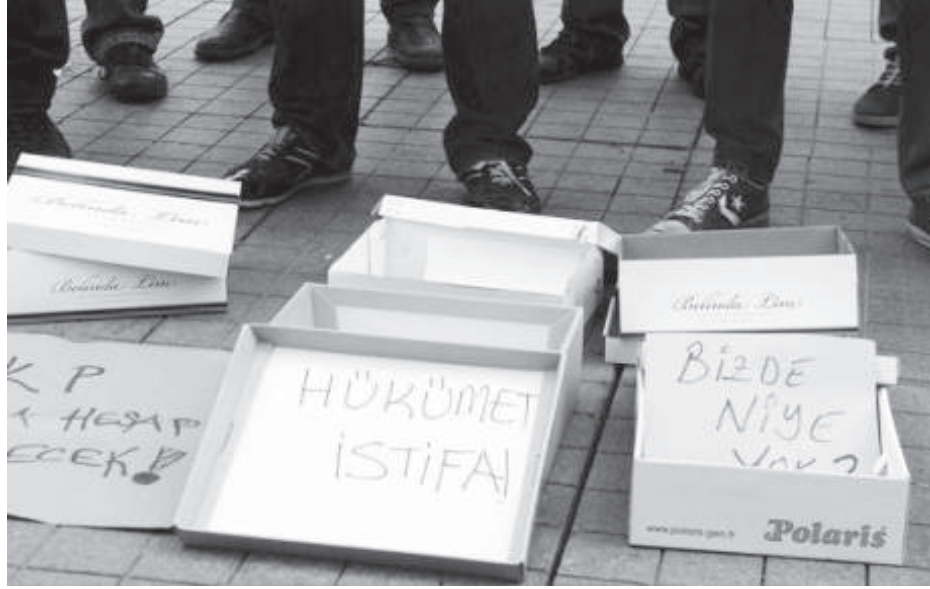 Belinda Lim
Belinda Lim
Belinda Lim
K P
HESAP
ECEK!
HÜKÜMET
İSTİFA!
BİZDE
NİYE
YOK?
www.polaris.gen.tr
Polaris